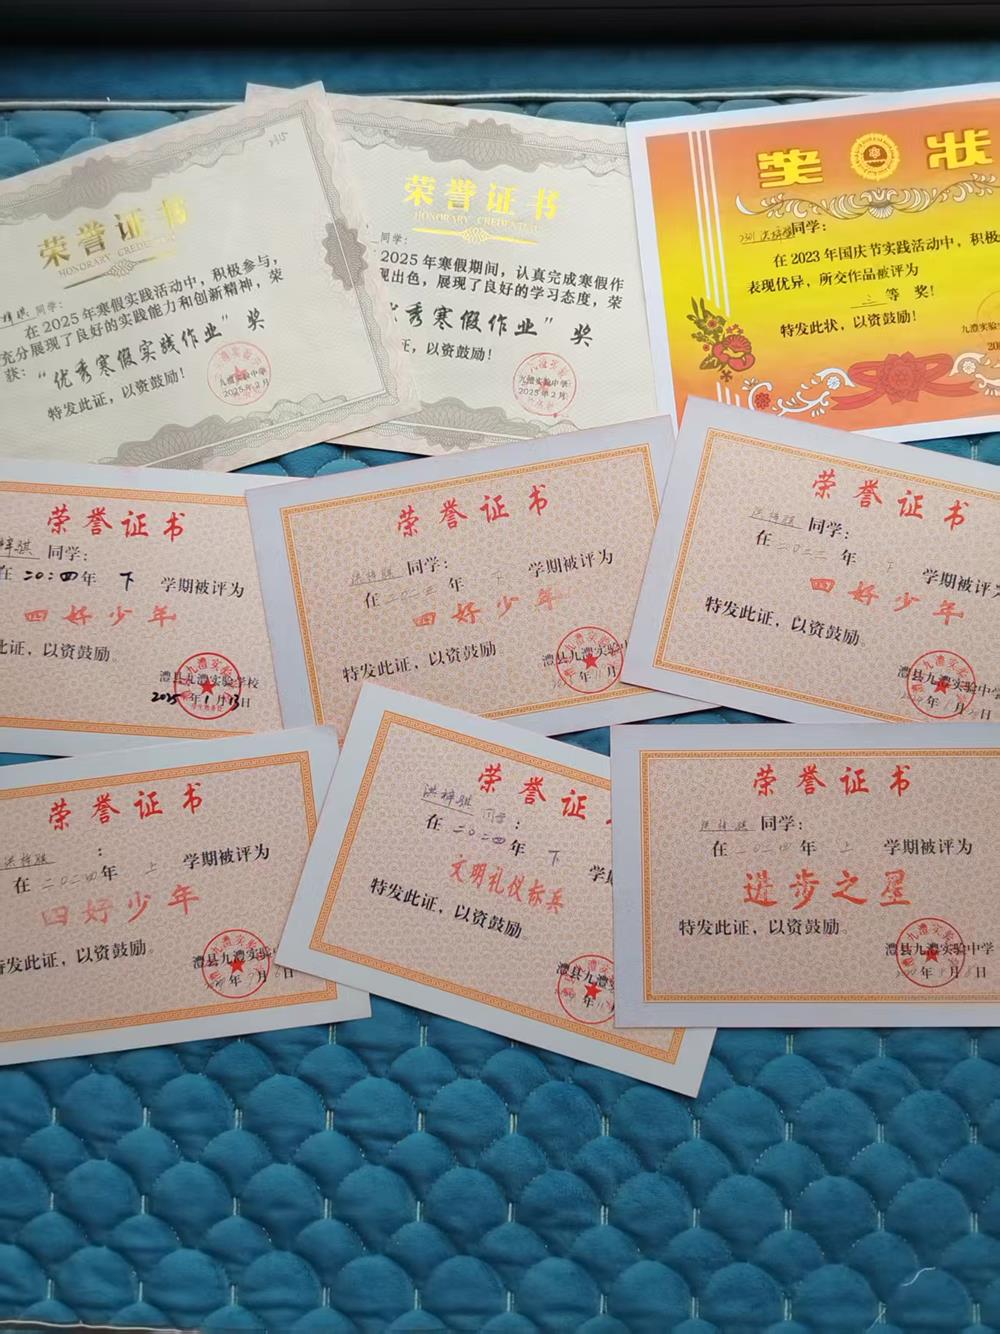 荣誉证书
HONORARY CREDENTIAL
同学:
在2025年寒假实践活动中，积极参与，
充分展现了良好的实践能力和创新精神，荣
获：“优秀寒假实践作业”奖
特发此证，以资鼓励！
九澧实验中学
2025年2月
荣誉证书
HONORARY CREDENTIAL
同学:
2025年寒假期间，认真完成寒假作
出色，展现了良好的学习态度，荣
秀寒假作业”奖
证，以资鼓励！
九澧实验中学
2025年2月
奖状
同学:
在2023年国庆节实践活动中，积极
表现优异，所交作品被评为
三等奖!
特发此状，以资鼓励!
九澧实验
荣誉证书
梓骐 同学:
在二〇二四年 下 学期被评为
四好少年
此证，以资鼓励。
澧县九澧实验学校
2025年1月13日
荣誉证书
洪梓骐 同学:
在 年 下 学期被评为
四好少年
特发此证，以资鼓励
澧县九澧实验中
年11月
荣誉证书
洪梓骐 同学:
在 年 下 学期被评为
四好少年
特发此证，以资鼓励。
澧县九澧实验中学
年 月 日
荣誉证书
洪梓骐 :
在二〇二四年 上 学期被评为
四好少年
特发此证，以资鼓励。
澧县九澧实验
年 月 日
荣誉证
洪梓骐 同学:
在二〇二四年 下 学
文明礼仪标兵
特发此证，以资鼓励。
澧县九澧
年11
荣誉证书
洪梓骐 同学:
在二〇二四年 上 学期被评为
进步之星
特发此证，以资鼓励。
澧县九澧实验中学
年 月 日